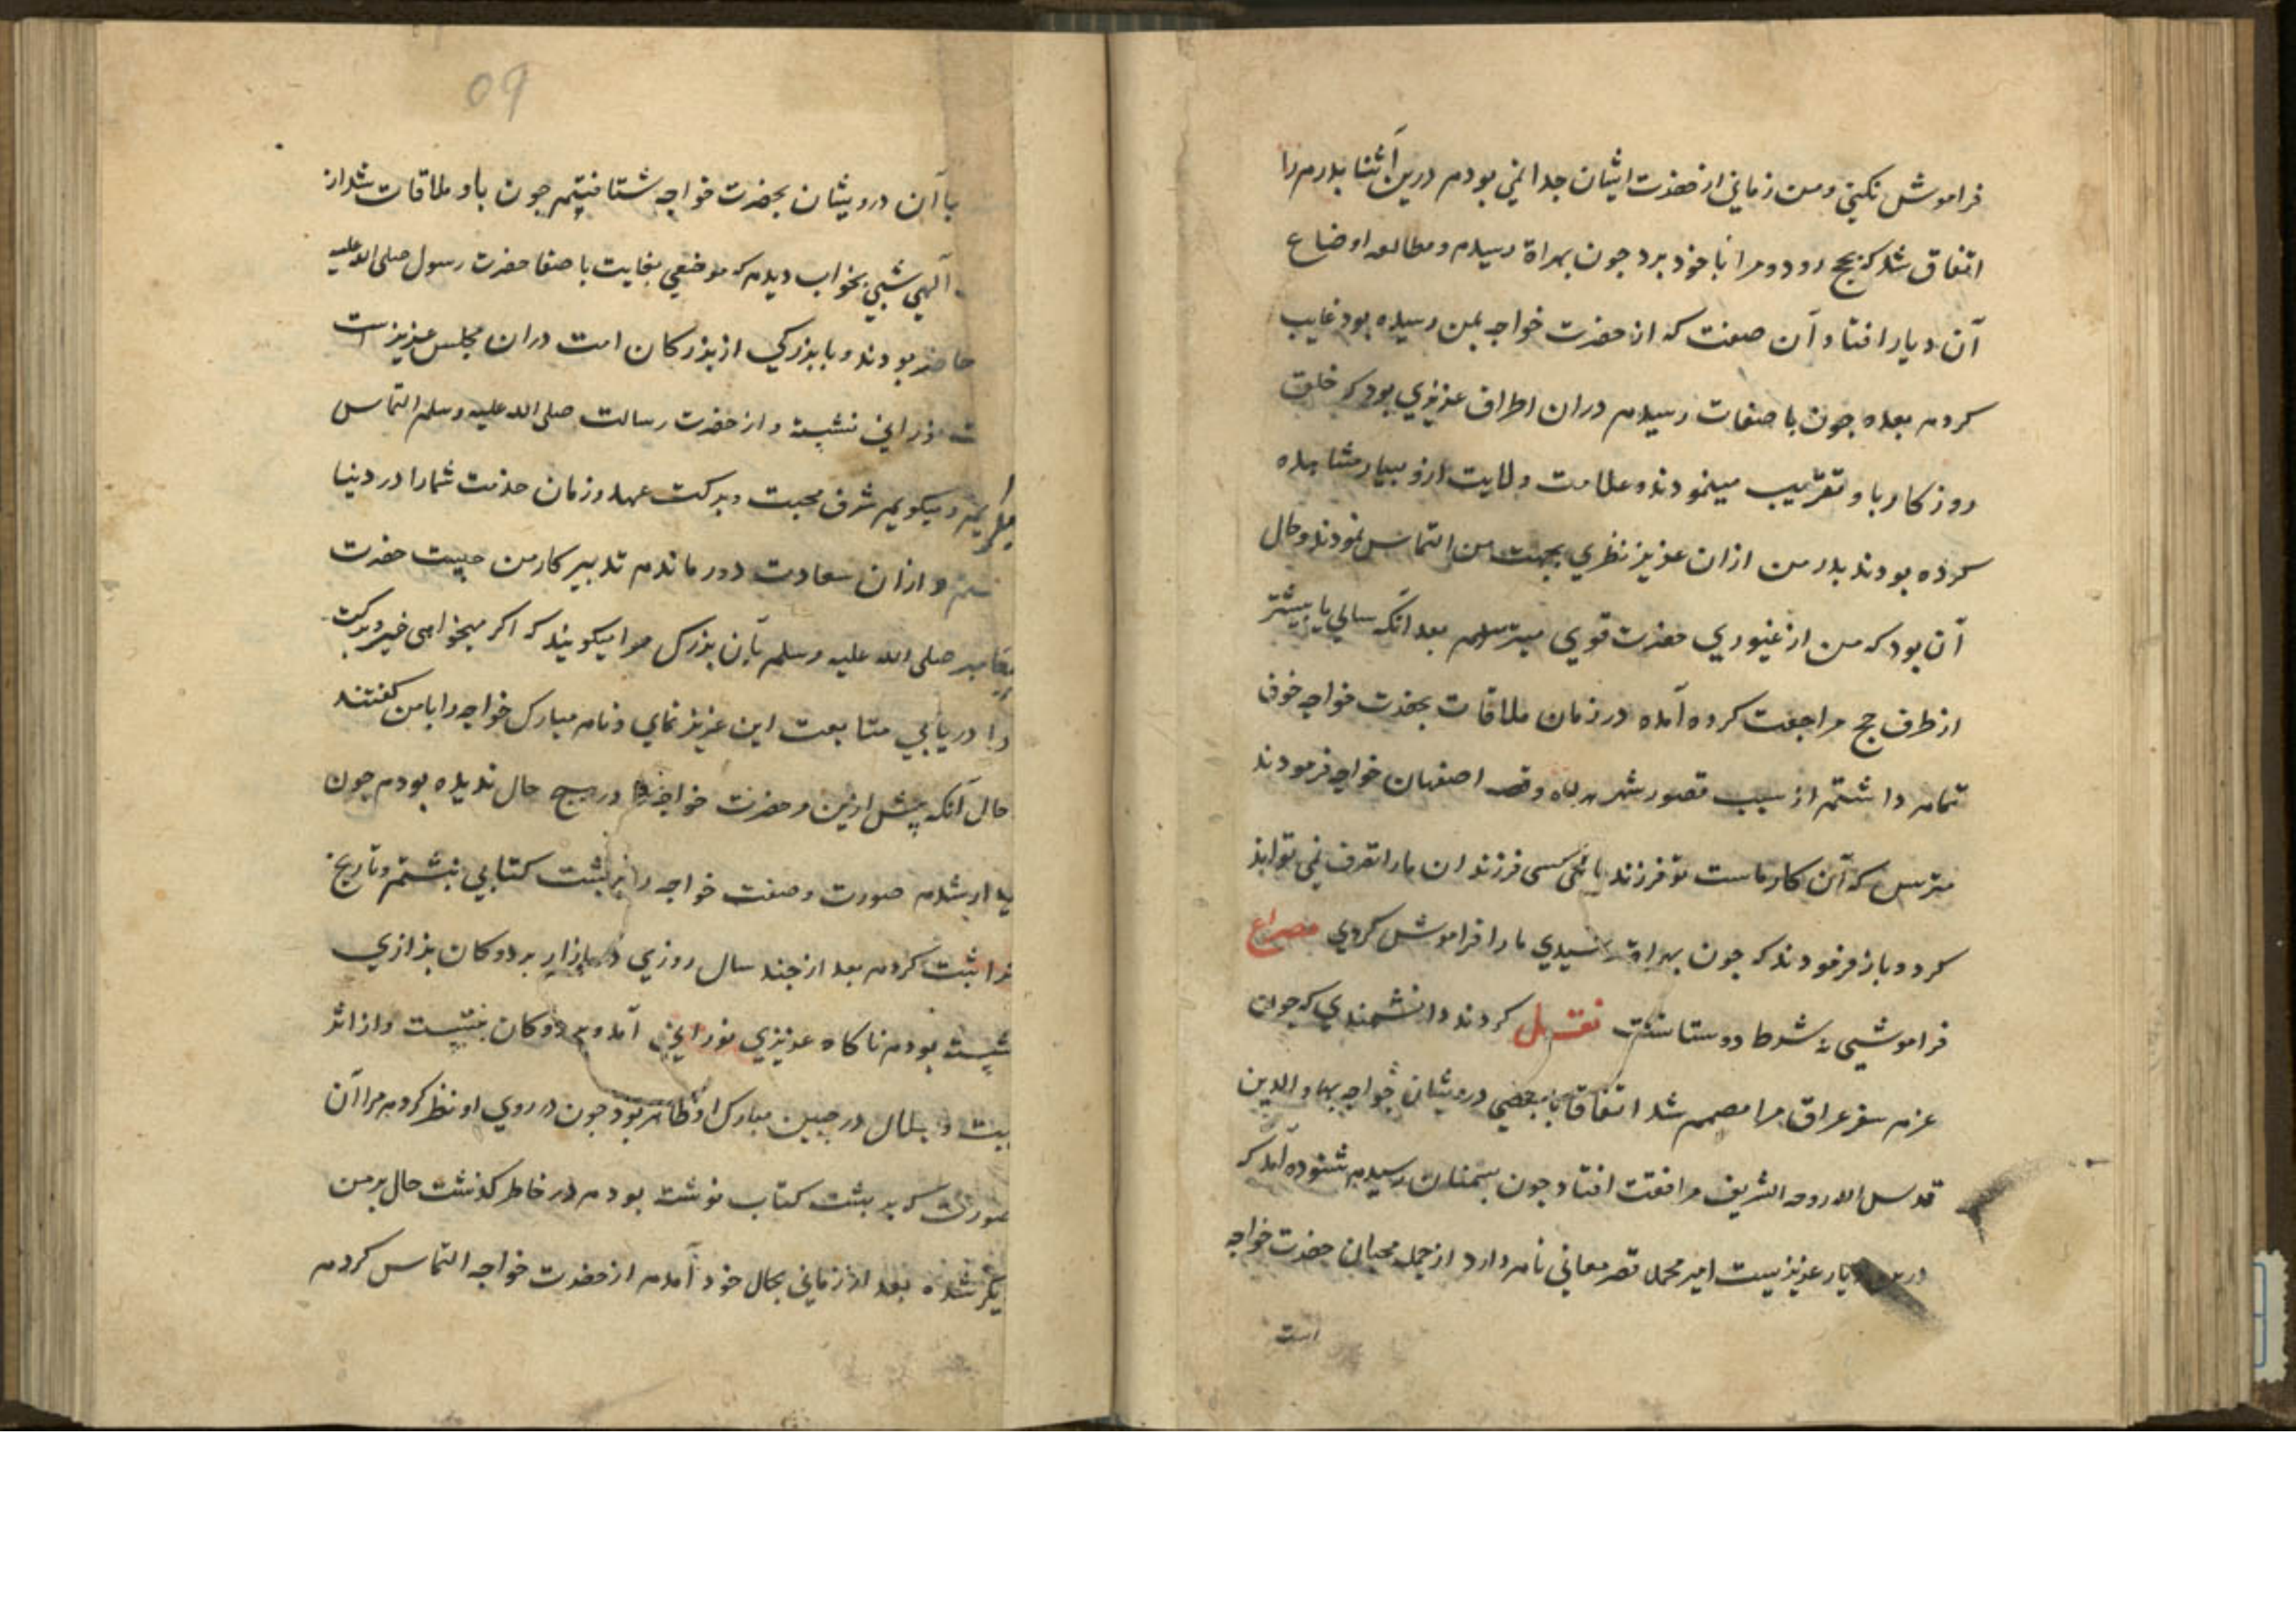 فراموش نکینی و من زمانی از حضرت ایشان جدا نمی بودم درین اثنا پدرم را
اتفاق شد که بحج رود و مرا با خود برد چون بهراة رسیدم و مطالعه اوضاع
آن دیار افتاد آن صفت که از حضرت خواجه بمن رسیده بود غایب
کردم بعده چون باصفات رسیدم دران اطراف عزیزی بود که خلق
روزکار باو تقرّب مینمودند و علامت ولایت ازو بسیار مشاهده
کرده بودند پدر من ازان عزیز نظری بجهت من التماس نمودند و حال
آن بود که من از غیوری حضرت قوی میترسیدم بعد آنکه سالی یا بیشتر
از طرف حج مراجعت کرده آمده در زمان ملاقات بحضرت خواجه خوف
تمام داشتم از سبب قصور شهر هراه و قصه اصفهان خواجه فرمودند
مترس که آن کار ماست تو فرزند مائی کسی فرزندان ما را تصرف نمی تواند
کرد و باز فرمودند که چون بهراة رسیدی ما را فراموش کردی مصراع
فراموشی نه شرط دوستانست نقل کردند دانشمندی که چون
عزم سفر عراق مرا مصمم شد اتفاقا با بعضی درویشان خواجه بهاء الدین
قدس الله روحه الشریف مرافقت افتاد چون بسمنان رسیدم شنوده آمد که
دیار عزیزیست امیر محمد قصر معانی نام دارد از جمله محبان حضرت خواجه
است
09
با آن درویشان بحضرت خواجه شتافتیم چون باو ملاقات شد از
آلهی شبی بخواب دیدم که موضعی بغایت با صفا حضرت رسول صلی الله علیه
حاضر بودند و با بزرکی از بزرکان امت دران مجلس عزیزست
نورانی نشسته و از حضرت رسالت صلی الله علیه وسلم التماس
میکریم و میکویم شرف محبت و برکت عهد و زمان خدمت شما را در دنیا
و ازان سعادت دور ماندم تدبیر کار من چیست حضرت
پیغامبر صلی الله علیه وسلم بآن بزرک مرا میکویند که اکر میخواهی خیر و برکت
را دریابی متابعت این عزیز نمای و نام مبارک خواجه را با من کفتند
حال آنکه پیش ازین من حضرت خواجه را در هیچ حال ندیده بودم چون
بیدار شدم صورت و صفت خواجه را بر پشت کتابی نبشتم و تاریخ
ثبت کردم بعد از چند سال روزی در بازار بر دوکان بزازی
نشسته بودم ناکاه عزیزی نورانی آمد و بر دوکان بنشست و از اثر
هیبت و جلال در جبین مبارک او ظاهر بود چون در روی او نظر کردم مرا آن
صورت که بر پشت کتاب نوشته بودم در خاطر کذشت حال بر من
دیکر شده بعد از زمانی بحال خود آمدم از حضرت خواجه التماس کردم